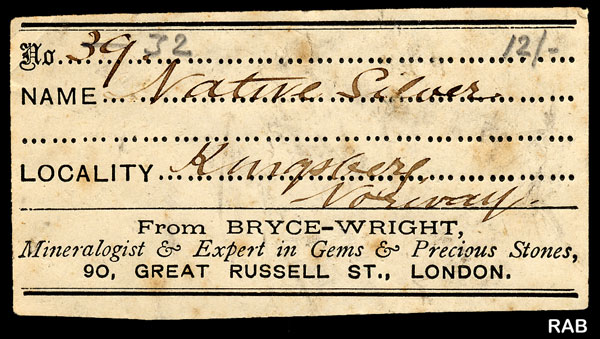 No. 39 32 12/-
NAME Native Silver
LOCALITY Kingsberg
Norway.
From BRYCE-WRIGHT,
Mineralogist & Expert in Gems & Precious Stones,
90, GREAT RUSSELL ST., LONDON.
RAB